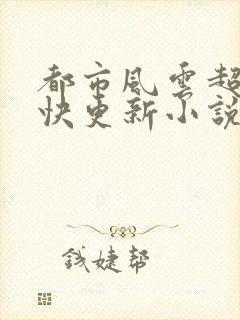 都市風雲超
快更新小說
錢婕幫